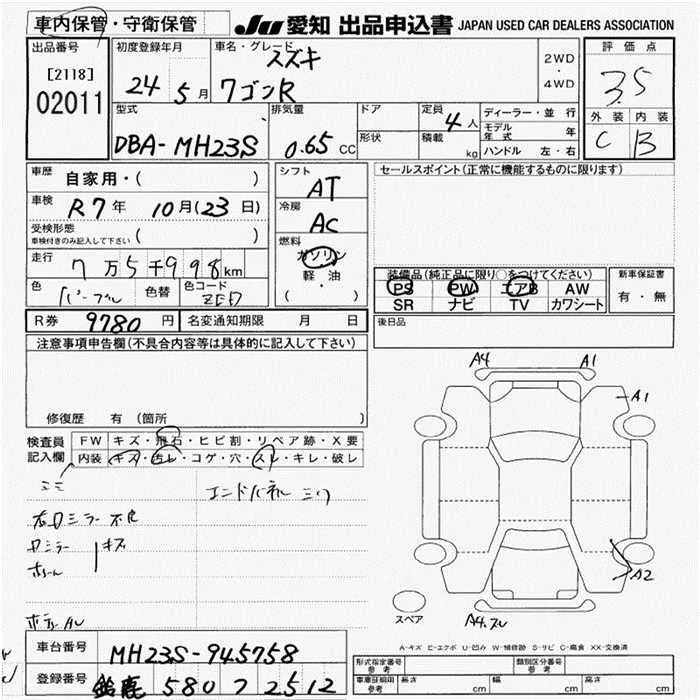 車内保管・守衛保管 JU 愛知 出品申込書 JAPAN USED CAR DEALERS ASSOCIATION
出品番号 [2118] 02011
初度登録年月 24 5月
車名・グレード スズキ ワゴンR
2WD・4WD
評価点 3.5
外装 内装
C B
型式 DBA-MH23S
排気量 0.65 CC
ドア
形状
定員 4人
積載 kg
ディーラー・並行
モデル年式 年
ハンドル 左・右
車歴 自家用・( )
車検 R7年 10月(23日)
受検形態
車検付きのみ記入して下さい ( )
走行 7万5千998km
色 パープル 色替 色コード
R券 9780円 名変通知期限 月 日
シフト AT
冷房 AC
燃料 ガソリン
軽・油
( )
セールスポイント(正常に機能するものに限ります)
装備品(純正品に限り○をつけてください)
PS PW エアB AW
SR ナビ TV カワシート
新車保証書
有・無
後日品
注意事項申告欄(不具合内容等は具体的に記入して下さい)
修復歴 有 (箇所 )
検査員記入欄
FW キズ・飛石・ヒビ割・リペア跡・X要
内装 キズ・汚レ・コゲ・穴・スレ・キレ・破レ
エンドパネル
ミラー 不良
ミラー キズ
A4 A1
A1
A2
スペア
A-キズ E-エクボ U-凹み W-補修跡 S-サビ C-腐食 XX-交換済
車台番号 MH23S-945758
登録番号 鈴鹿 580 フ 2512
形式指定番号 参考
類別区分番号 参考
車庫証明用 参考 長さ cm 幅 cm 高さ cm